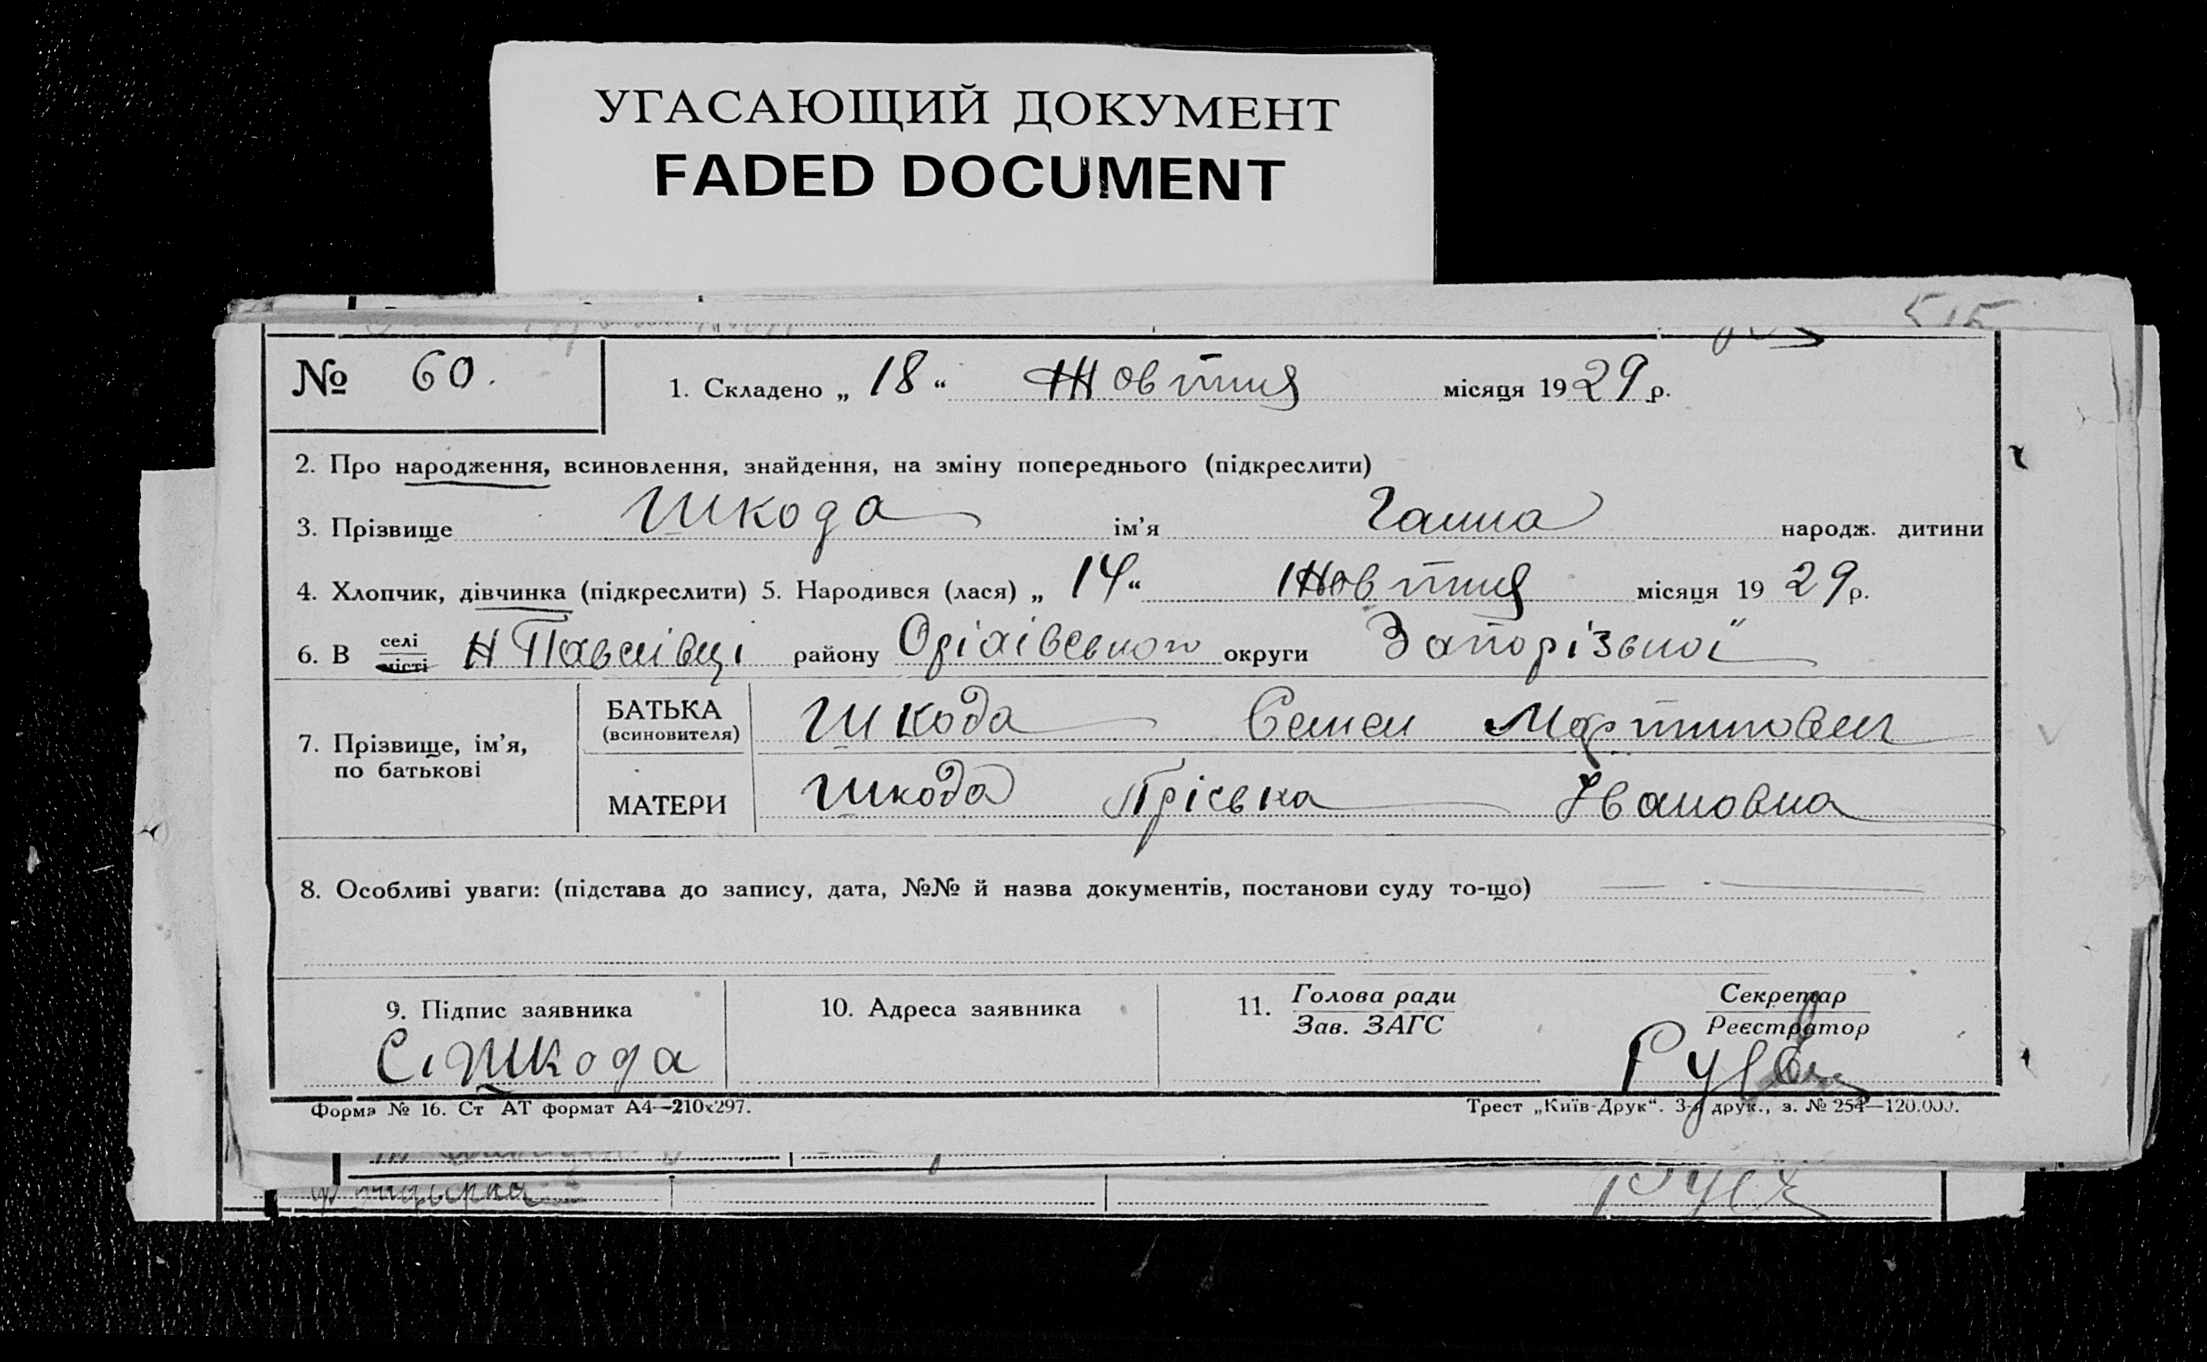 УГАСАЮЩИЙ ДОКУМЕНТ
FADED DOCUMENT
№ 60. 1. Складено „ 18 “ Жовтня місяця 1929 р.
2. Про народження, всиновлення, знайдення, на зміну попереднього (підкреслити)
3. Прізвище Шкода ім’я Ганна народж. дитини
4. Хлопчик, дівчинка (підкреслити) 5. Народився (лася) „ 14 “ Жовтня місяця 1929 р.
6. В селі місті Н Павлівці району Оріхівського округи Запорізької
7. Прізвище, ім’я, по батькові
БАТЬКА (всиновителя) Шкода Семен Мартинович
МАТЕРИ Шкода Пріська Івановна
8. Особливі уваги: (підстава до запису, дата, №№ й назва документів, постанови суду то-що)
9. Підпис заявника 10. Адреса заявника 11. Голова ради Зав. ЗАГС Секретар Реєстратор
С. Шкода
Форма № 16. Ст АТ формат А4—210х297. Трест „Київ-Друк“. 3-я друк., з. № 254—120.000.